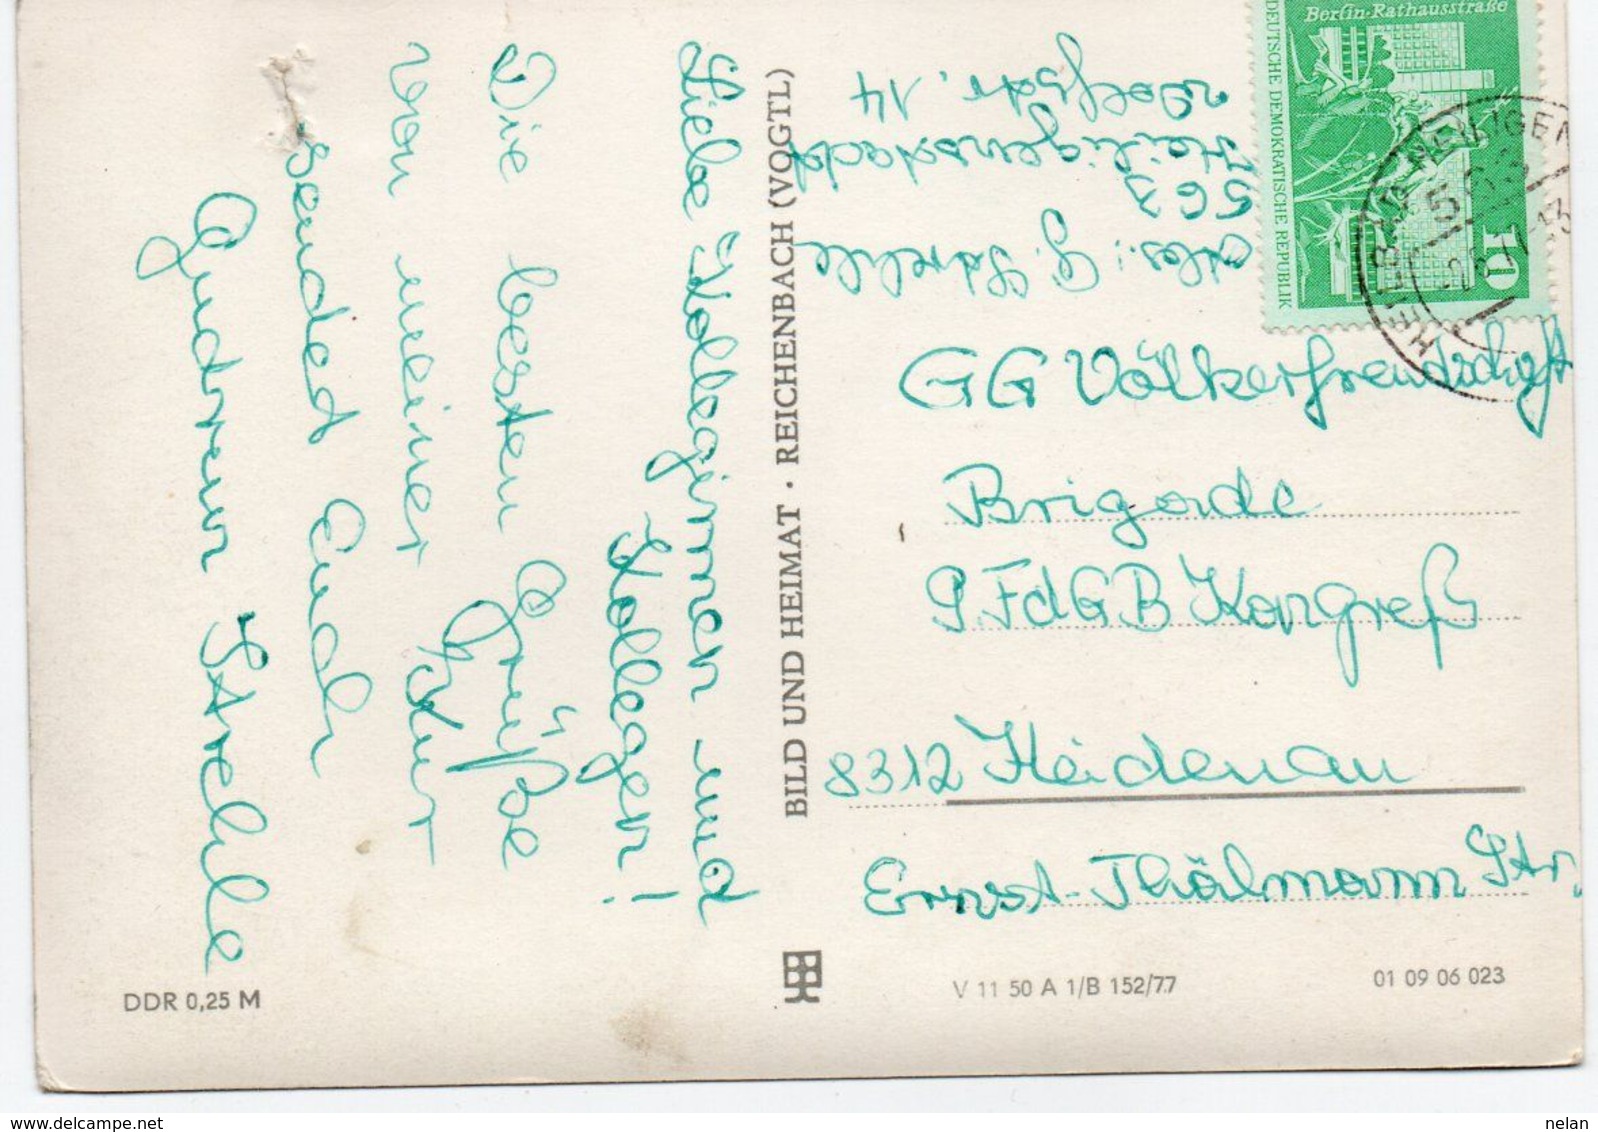 Liebe Kolleginnen und
Kollegen!
Die besten Grüße
von meiner Kur
sendet Euch
Gudrun Strehle
BILD UND HEIMAT · REICHENBACH (VOGTL)
Abs.: G. Strehle
563
Heiligenstadt
str. 14
Berlin-Rathausstraße
DEUTSCHE DEMOKRATISCHE REPUBLIK
10
GG Völkerfreundschaft
Brigade
9. FdGB Kongreß
8312 Heidenau
Ernst-Thälmann Str.
DDR 0,25 M
V 11 50 A 1/B 152/77
01 09 06 023
delcampe.net
nelan